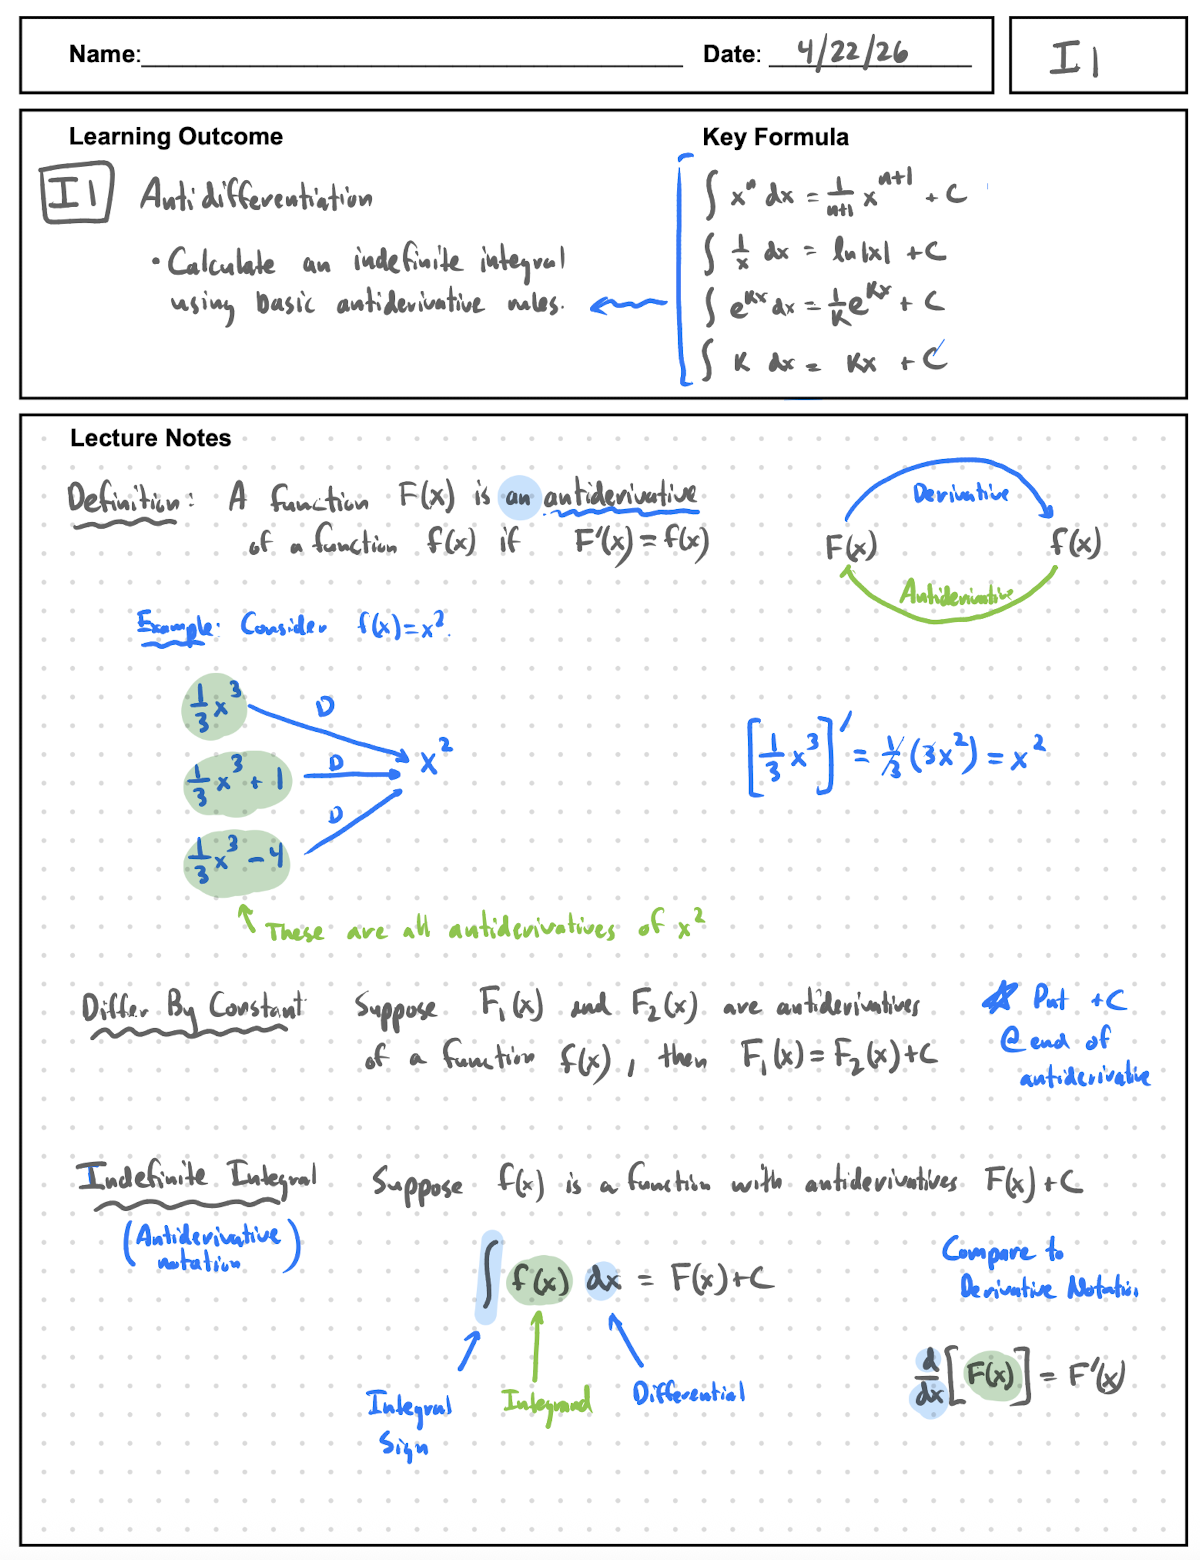 Name: Date: 4/22/26 I1
Learning Outcome
I1 Antidifferentiation
• Calculate an indefinite integral
using basic antiderivative rules.
Key Formula
∫ xⁿ dx = 1/(n+1) xⁿ⁺¹ + C
∫ 1/x dx = ln|x| + C
∫ eᴷˣ dx = 1/K eᴷˣ + C
∫ K dx = Kx + C
Lecture Notes
Definition: A function F(x) is an antiderivative
of a function f(x) if F'(x) = f(x)
Derivative
F(x) f(x)
Antiderivative
Example: Consider f(x)=x².
1/3 x³ D
1/3 x³ + 1 D x²
1/3 x³ - 4 D
[1/3 x³]' = 1/3 (3x²) = x²
These are all antiderivatives of x²
Differ By Constant Suppose F₁(x) and F₂(x) are antiderivatives
of a function f(x), then F₁(x) = F₂(x)+C
☆ Put +C
@ end of
antiderivative
Indefinite Integral Suppose f(x) is a function with antiderivatives F(x)+C
(Antiderivative
notation)
∫ f(x) dx = F(x)+C
Integral
Sign
Integrand
Differential
Compare to
Derivative Notation
d/dx [F(x)] = F'(x)